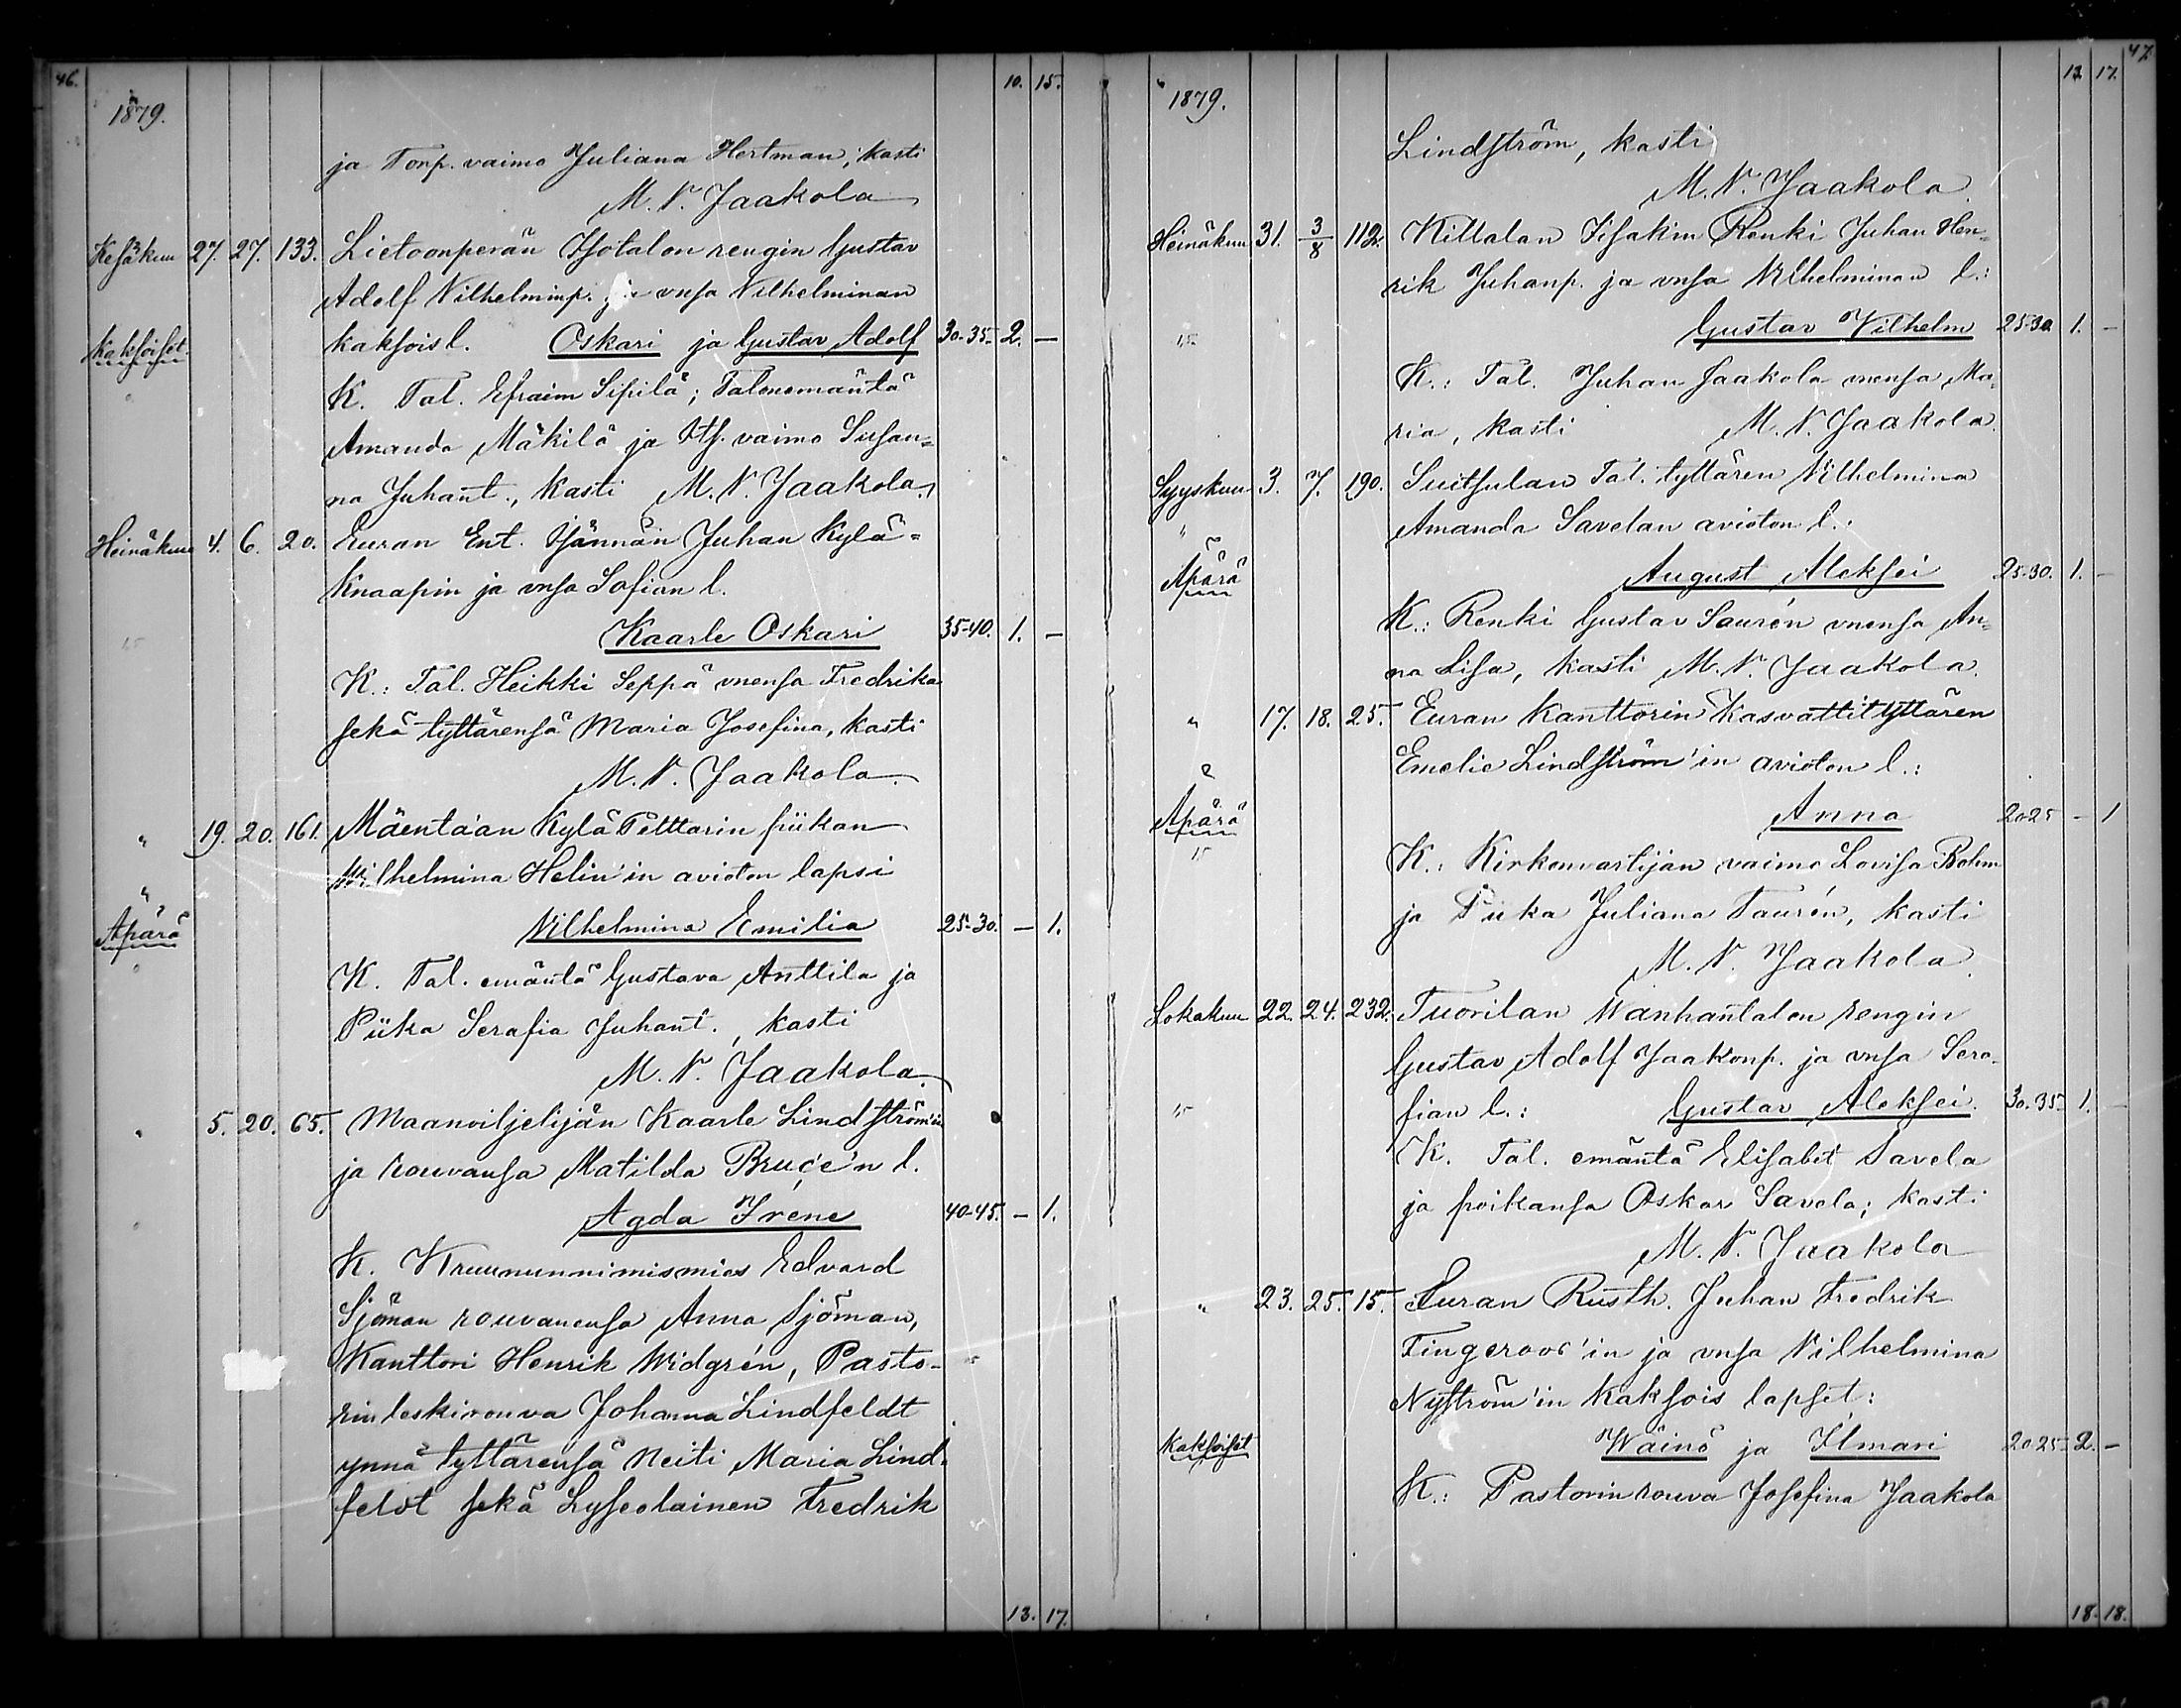 46.
10. 15.
1879.
ja Torp. vaimo Juliana Hertman; kasti
M. V. Jaakola
Kesäkuu 27. 27. 133. Lietoonperän Isotalon rengin Gustav
Adolf Vilhelminp. ja vnsa Vilhelminan
Kaksoiset. kaksois l. Oskari ja Gustav Adolf 30-35. 2. —
K. Tal. Efraim Sipilä; Talonemäntä
Amanda Mäkilä ja Its. vaimo Susan=
na Juhant., kasti M. V. Jaakola.
Heinäkuu 4. 6. 20. Euran Ent. Isännän Juhan Kylä=
Knaapin ja vnsa Sofian l.
Kaarle Oskari 35-40. 1. —
K.: Tal. Heikki Seppä vnensa Fredrika
sekä tyttärensä Maria Josefina, kasti
M. V. Jaakola.
" 19. 20. 161. Mäentaan Kylä Pelttarin piikan
Vilhelmina Helin'in avioton lapsi
"
Äpärä Vilhelmina Emilia 25-30. — 1.
K. Tal. emäntä Gustava Anttila ja
Piika Serafia Juhant., kasti
M. V. Jaakola.
" 5. 20. 65. Maanviljelijän Kaarle Lindström'in
ja rouvansa Matilda Bruce'n l.
Agda Iréne 40-45. — 1.
K. Kruununnimismies Edvard
Sjöman rouvanensa Anna Sjöman,
Kanttori Henrik Widgrén, Pasto-
rinleskirouva Johanna Lindfeldt
ynnä tyttärensä Neiti Maria Lind-
feldt sekä Lyseolainen Fredrik
13. 17.
47.
13. 17.
1879.
Lindström, kasti
M. V. Jaakola.
Heinäkuu 31. 3/8 112. Kittalan Iisakin Renki Juhan Hen=
rik Juhanp. ja vnsa Vilhelminan l.:
Gustav Vilhelm 25-30. 1. —
K.: Tal. Juhan Jaakola vnensa Ma=
ria, kasti M. V. Jaakola.
Syyskuu 3. 7. 190. Suitsulan Tal. tyttären Vilhelmina
" Amanda Savelan avioton l.:
Äpärä August Aleksei 25-30. 1. —
K.: Renki Gustav Saurén vnensa An=
na Lisa, kasti M. V. Jaakola.
" 17. 18. 25. Euran Kanttorin Kasvattityttären
Emelie Lindström'in avioton l.:
Äpärä Anna 20-25 — 1
K.: Kirkonvartijan vaimo Lovisa Bohm
ja Piika Juliana Taurén, kasti
M. V. Jaakola.
Lokakuu 22. 24. 232. Tuorilan Wanhantalon rengin
Gustav Adolf Jaakonp. ja vnsa Sera-
fian l.: Gustav Aleksei. 30-35. 1. —
K. Tal. emäntä Elisabet Savela
ja poikansa Oskar Savela; kasti
M. V. Jaakola
" 23. 25. 15. Euran Rusth. Juhan Fredrik
Fingeroos'in ja vnsa Vilhelmina
Nyström'in kaksois lapset:
Kaksoiset Wäinö ja Ilmari 20-25. 2. —
K.: Pastorin rouva Josefina Jaakola
18. 18.